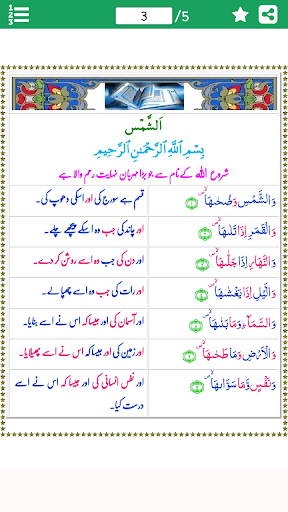 1
2
3
3 /5
اَلشَّمْس
بِسْمِ ٱللَّهِ ٱلرَّحْمَـٰنِ ٱلرَّحِيمِ
شروع اللہ کے نام سے جو بڑا مہربان نہایت رحم والا ہے
وَالشَّمْسِ وَضُحٰىهَا ۙ قسم ہے سورج کی اور اسکی دھوپ کی۔
وَالْقَمَرِ اِذَا تَلٰىهَا ۙ اور چاند کی جب وہ اسکے پیچھے چلے۔
وَالنَّهَارِ اِذَا جَلّٰىهَا ۙ اور دن کی جب وہ اسے روشن کر دے۔
وَالَّيْلِ اِذَا يَغْشٰىهَا ۙ اور رات کی جب وہ اسے چھپا لے۔
وَالسَّمَآءِ وَمَا بَنٰىهَا ۙ اور آسمان کی اور جیسا کہ اس نے اسے بنایا۔
وَالْاَرْضِ وَمَا طَحٰىهَا ۙ اور زمین کی اور جیسا کہ اس نے اسے پھیلایا۔
وَنَفْسٍ وَّمَا سَوّٰىهَا ۙ اور نفس انسانی کی اور جیسا کہ اس نے اسے
درست کیا۔